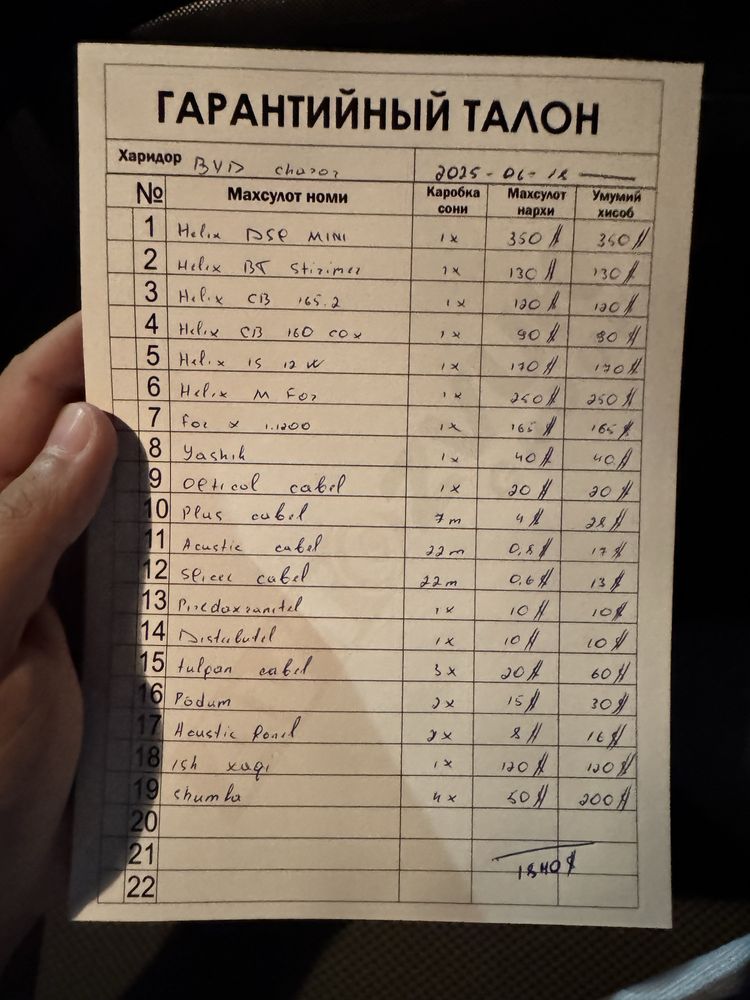 ГАРАНТИЙНЫЙ ТАЛОН
Харидор BYD chazor 2025-06-18
№ Махсулот номи Каробка сони Махсулот нархи Умумий хисоб
1 Helix DSP MINI 1x 350$ 350$
2 Helix BT Stirimer 1x 130$ 130$
3 Helix CB 165.2 1x 120$ 120$
4 Helix CB 160 cox 1x 90$ 90$
5 Helix IS 12 W 1x 170$ 170$
6 Helix M For 1x 250$ 250$
7 For x 1.1200 1x 165$ 165$
8 Yashik 1x 40$ 40$
9 Opticol cabel 1x 20$ 20$
10 Plus cabel 7m 4$ 28$
11 Acustic cabel 22m 0,8$ 17$
12 Spicer cabel 22m 0,6$ 13$
13 Piredoxranitel 1x 10$ 10$
14 Distebutel 1x 10$ 10$
15 tulpan cabel 3x 20$ 60$
16 Podum 2x 15$ 30$
17 Acustic Ponel 2x 8$ 16$
18 ish xaqi 1x 120$ 120$
19 shumka 4x 50$ 200$
20
21 1840$
22